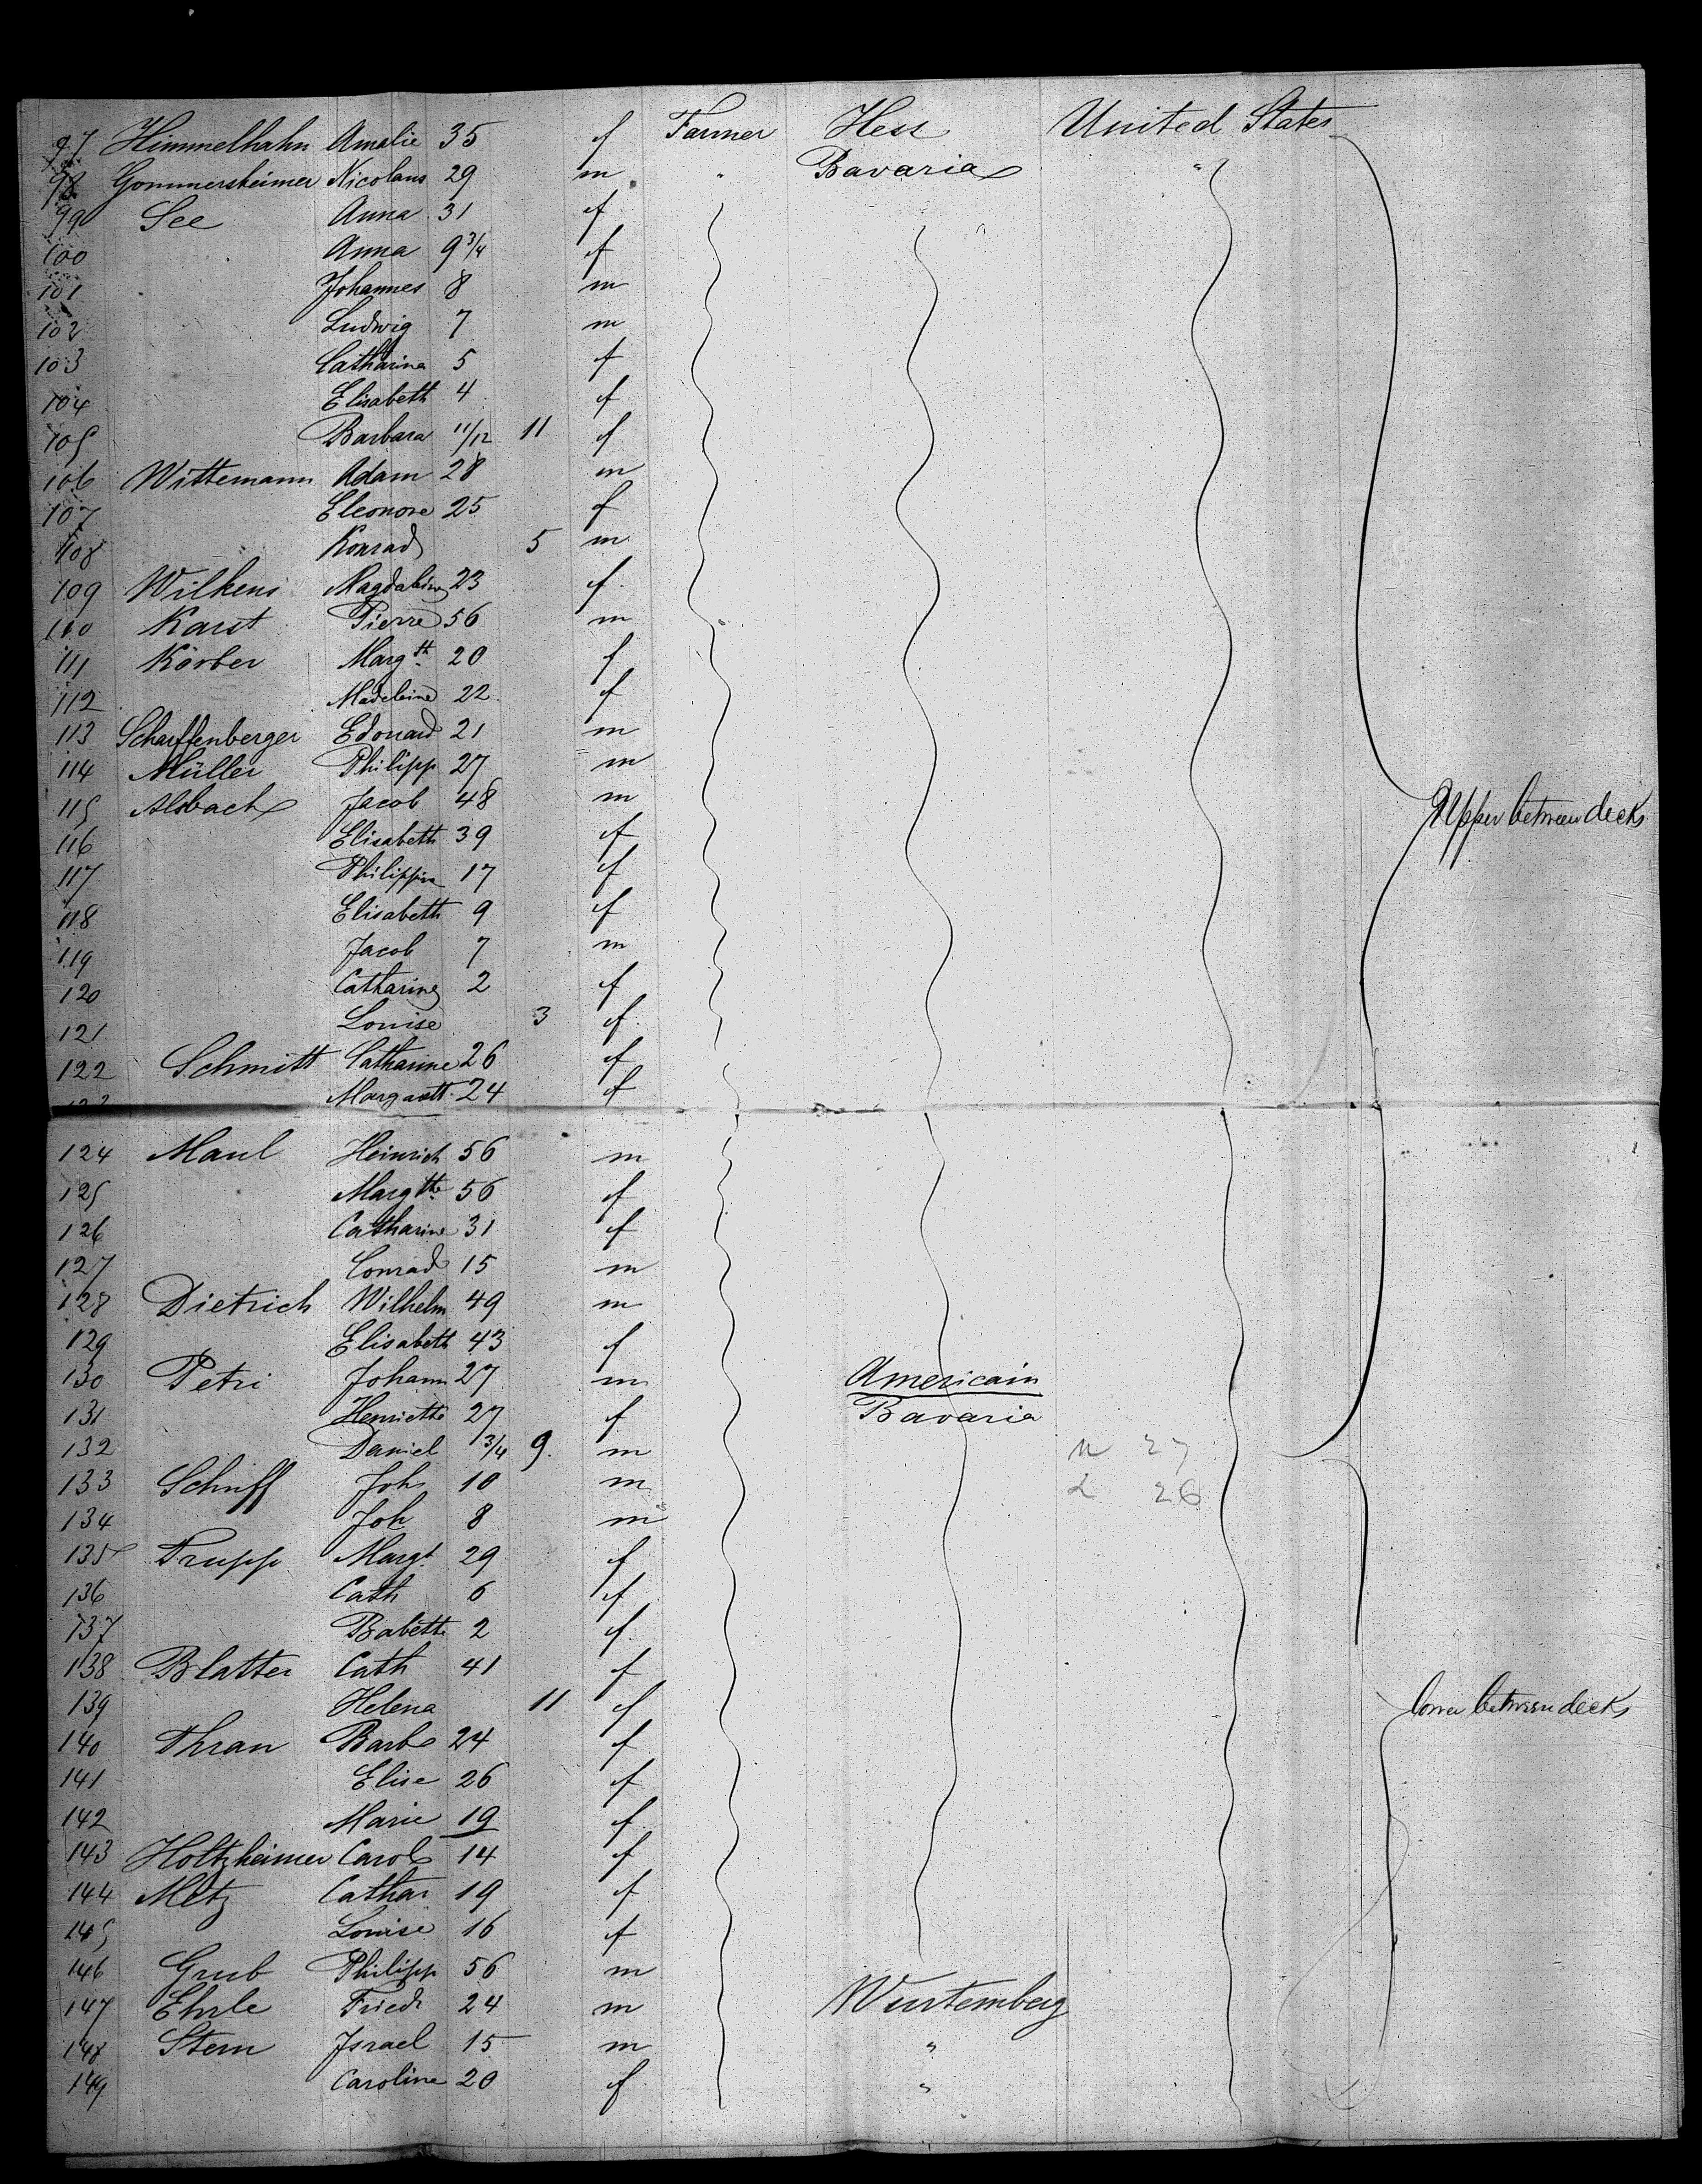 97 Himmelhahn Amalie 35 f Farmer Hess United States
98 Gommersheimer Nicolaus 29 m " Bavaria "
99 See Anna 31 f "
100 Anna 9 3/4 f
101 Johannes 8 m
102 Ludwig 7 m
103 Catharina 5 f
104 Elisabeth 4 f
105 Barbara 11/12 11 f
106 Wittemann Adam 28 m
107 Eleonore 25 f
108 Konrad 5 m
109 Wilkens 23 f
110 Karst Pierre 56 m
111 Körber Margth 20 f
112 Madeleine 22 f
113 Scharffenberger Edouard 21 m
114 Müller Philipp 27 m
115 Alsbach Jacob 48 m Upper between decks
116 Elisabeth 39 f
117 Philippin 17 f
118 Elisabeth 9 f
119 Jacob 7 m
120 Catharina 2 f
121 Louise 3 f
122 Schmitt Catharine 26 f
123 24 f
124 Maul Heinrich 56 m
125 Margthe 56 f
126 Catharine 31 f
127 Conrad 15 m
128 Dietrich Wilhelm 49 m
129 Elisabeth 43 f
130 Petri Johann 27 m Americain
131 Henriette 27 f Bavaria
132 Daniel 3/4 9 m 27
133 Schuff Joh 10 m 26
134 Joh 8 m
135 Trupp Margt 29 f
136 Cath 6 f
137 Babette 2 f
138 Blatter Cath 41 f
139 Helena 11 f lower between decks
140 Thran Barb 24 f
141 Elise 26 f
142 Marie 19 f
143 Holtzheimer Carol 14 f
144 Metz Cathar 19 f
145 Louise 16 f
146 Grub Philipp 56 m
147 Ehrle Friedr 24 m Wurtemberg
148 Stern Israel 15 m "
149 Caroline 20 f "